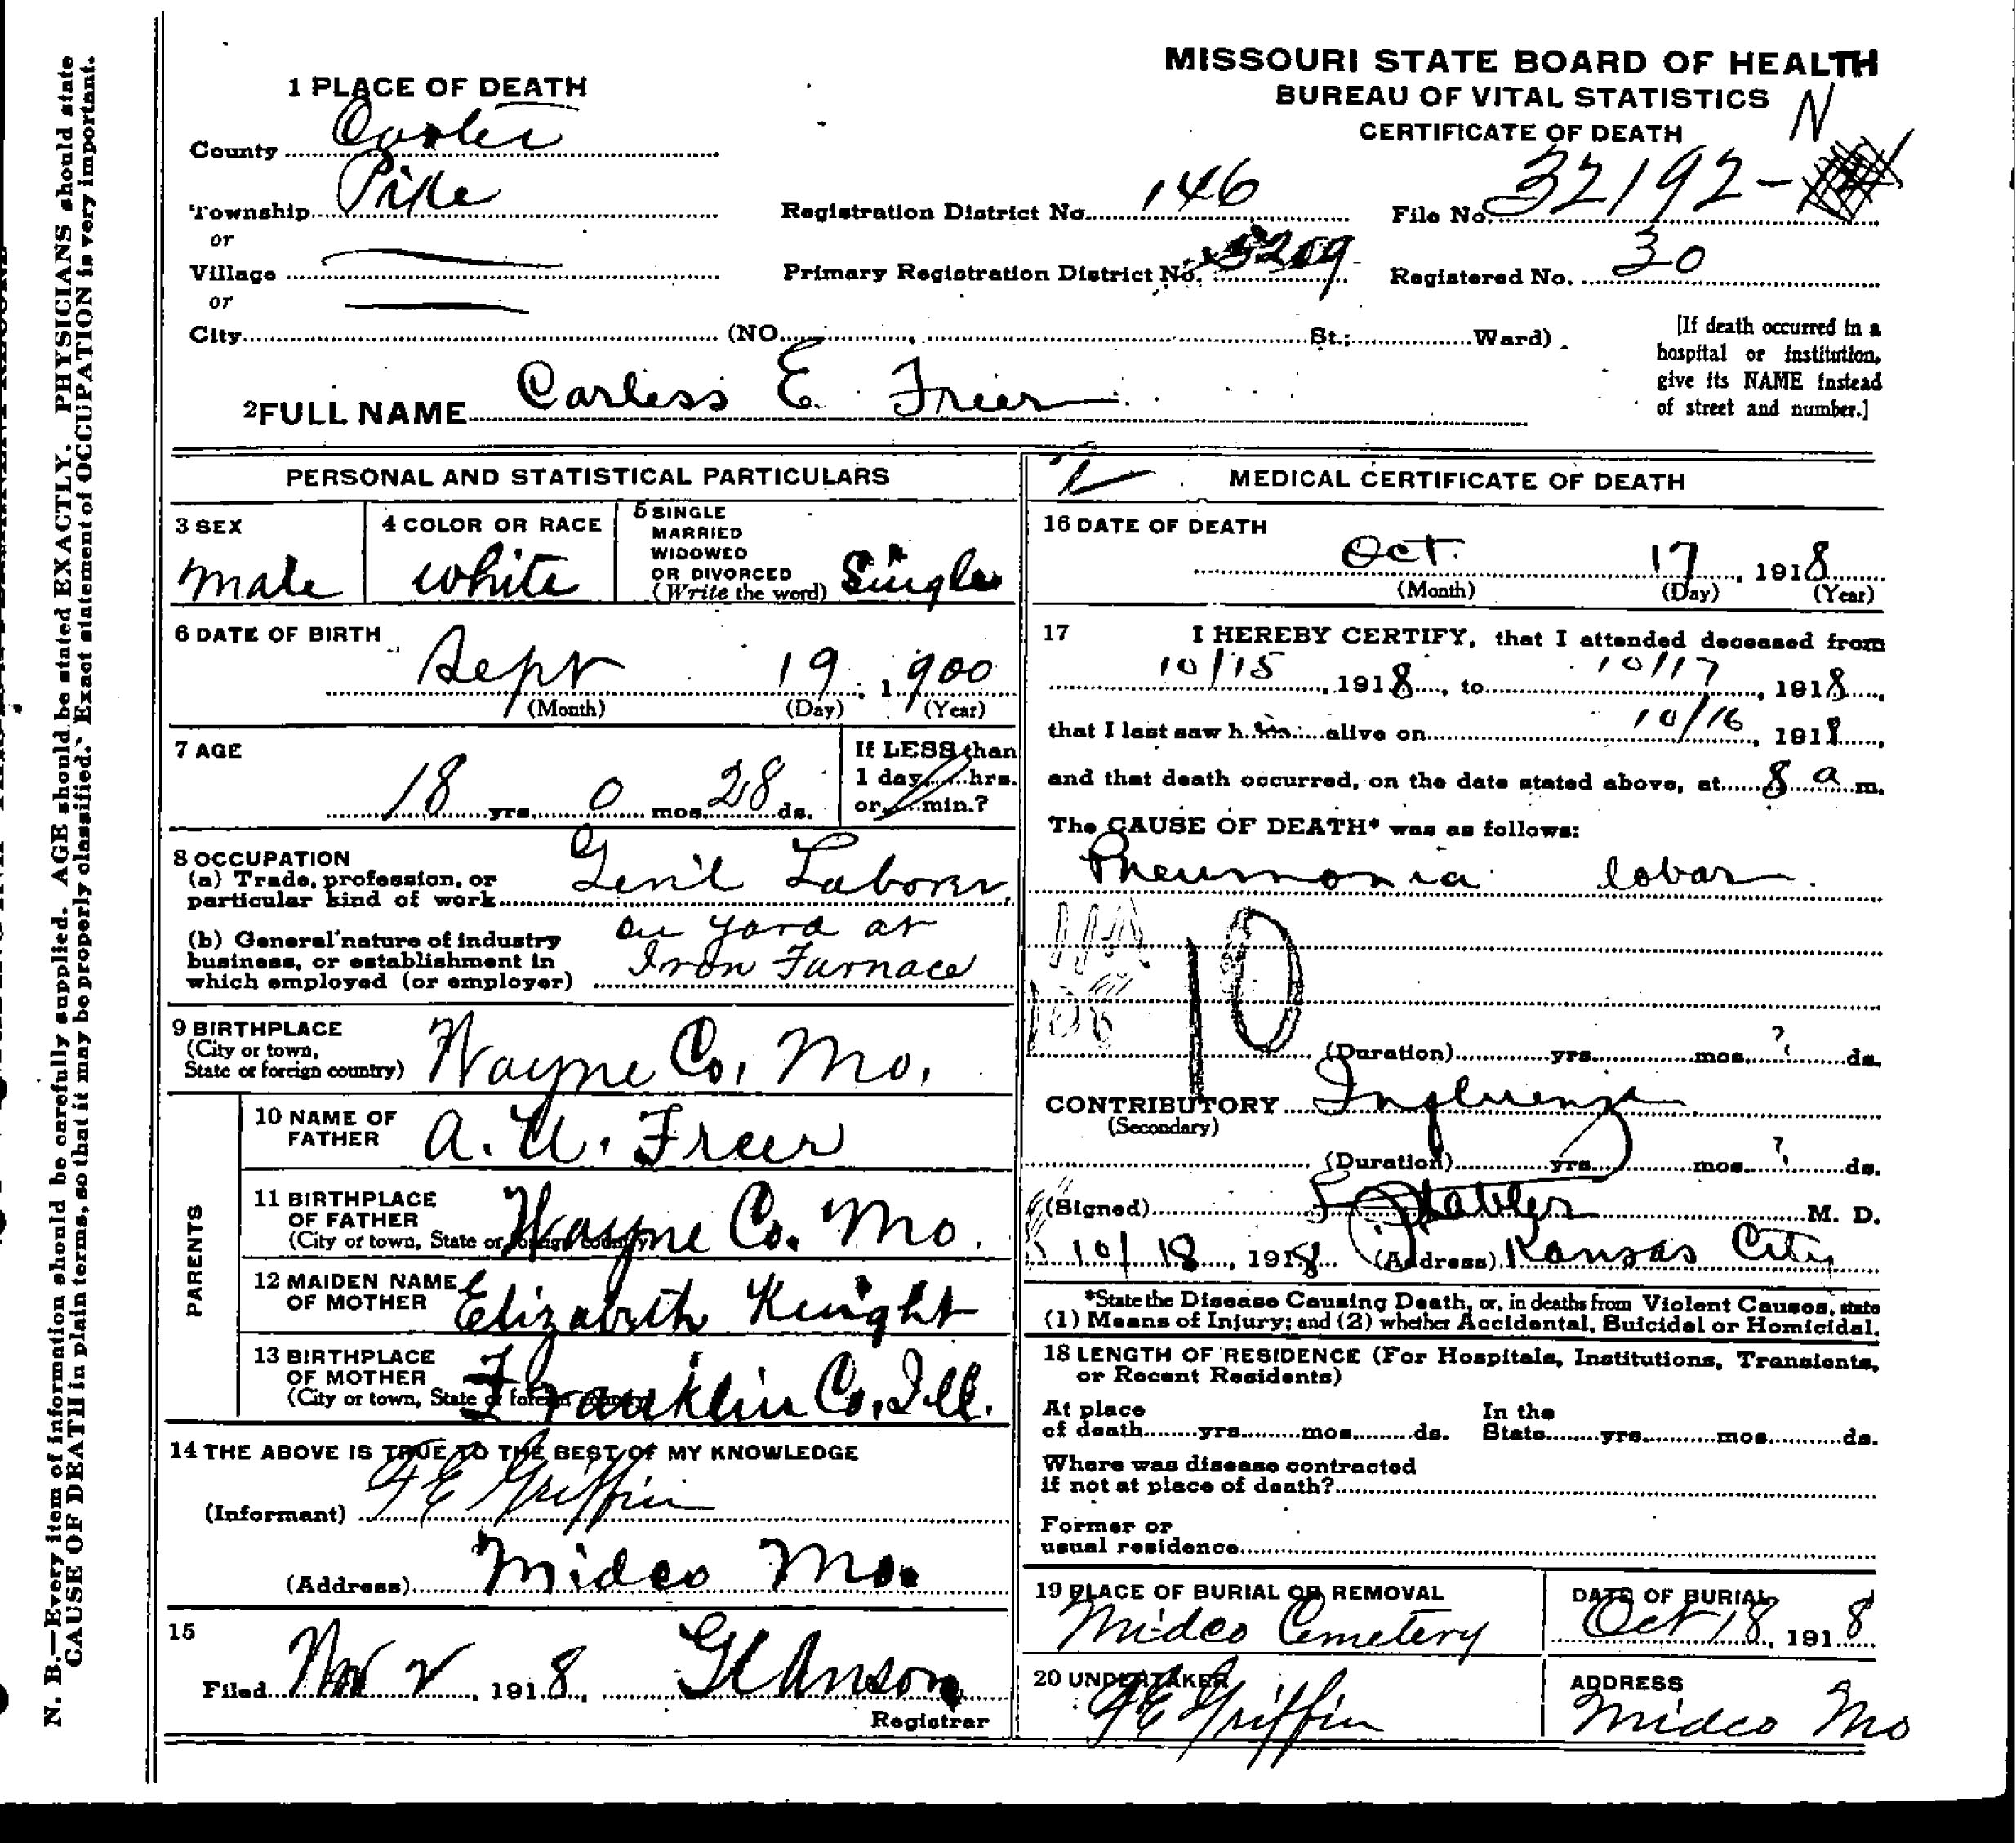 MISSOURI STATE BOARD OF HEALTH
BUREAU OF VITAL STATISTICS
CERTIFICATE OF DEATH
N
1 PLACE OF DEATH
County Carter
Township Pike
or
Village
or
City (NO. St.; Ward)
Registration District No. 146
File No. 32192-
Primary Registration District No. 5209
Registered No. 30
[If death occurred in a
hospital or institution,
give its NAME instead
of street and number.]
2 FULL NAME Carless E. Freer
PERSONAL AND STATISTICAL PARTICULARS
3 SEX
male
4 COLOR OR RACE
white
5 SINGLE
MARRIED
WIDOWED
OR DIVORCED
(Write the word) Single
6 DATE OF BIRTH
Sept 19, 1900
(Month) (Day) (Year)
7 AGE
18 yrs. 0 mos. 28 ds.
If LESS than
1 day, hrs.
or min.?
8 OCCUPATION
(a) Trade, profession, or
particular kind of work Gen'l Laborer
(b) General nature of industry
business, or establishment in
which employed (or employer)
on yard at
Iron Furnace
9 BIRTHPLACE
(City or town,
State or foreign country) Wayne Co, Mo,
PARENTS
10 NAME OF
FATHER A. U. Freer
11 BIRTHPLACE
OF FATHER
(City or town, State or foreign country) Wayne Co. Mo.
12 MAIDEN NAME
OF MOTHER Elizabeth Knight
13 BIRTHPLACE
OF MOTHER
(City or town, State or foreign country) Franklin Co, Ill.
14 THE ABOVE IS TRUE TO THE BEST OF MY KNOWLEDGE
(Informant) Griffin
(Address) Midco Mo.
15
Filed Nov 2, 1918, Registrar
MEDICAL CERTIFICATE OF DEATH
16 DATE OF DEATH
Oct. 17, 1918
(Month) (Day) (Year)
17 I HEREBY CERTIFY, that I attended deceased from
10/15, 1918, to 10/17, 1918,
that I last saw h im alive on 10/16, 1918,
and that death occurred, on the date stated above, at 8 a m.
The CAUSE OF DEATH* was as follows:
Pneumonia lobar
10
(Duration) yrs. mos. ? ds.
CONTRIBUTORY Influenza
(Secondary)
(Duration) yrs. mos. ? ds.
(Signed) M. D.
10/18, 1918 (Address) Kansas City
*State the Disease Causing Death, or, in deaths from Violent Causes, state
(1) Means of Injury; and (2) whether Accidental, Suicidal or Homicidal.
18 LENGTH OF RESIDENCE (For Hospitals, Institutions, Transients,
or Recent Residents)
At place
of death yrs. mos. ds. In the
State yrs. mos. ds.
Where was disease contracted
if not at place of death?
Former or
usual residence
19 PLACE OF BURIAL OR REMOVAL
Midco Cemetery
DATE OF BURIAL
Oct 18, 1918
20 UNDERTAKER
Griffin
ADDRESS
Midco Mo
N. B.—Every item of information should be carefully supplied. AGE should be stated EXACTLY. PHYSICIANS should state
CAUSE OF DEATH in plain terms, so that it may be properly classified. Exact statement of OCCUPATION is very important.